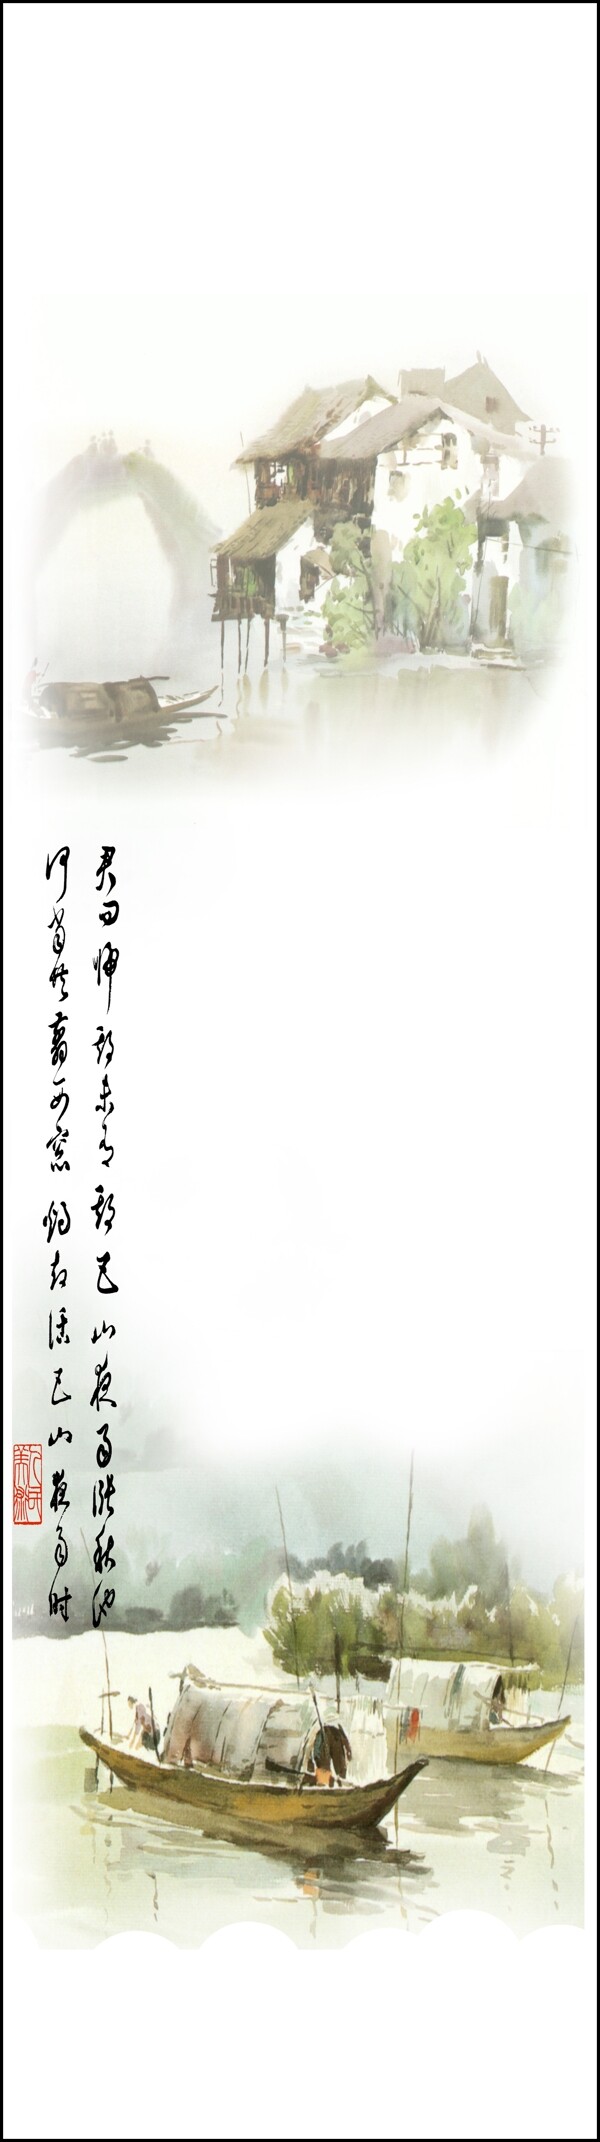 君问归期未有期巴山夜雨涨秋池
何当共剪西窗烛却话巴山夜雨时